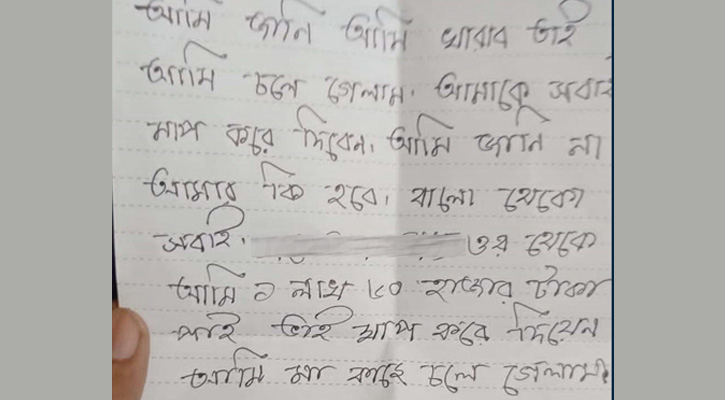 আমি জানি আমি খারাব তাই
আমি চলে গেলাম। আমাকে সবাই
মাপ করে দিবেন। আমি জানি না
আমার কি হবে। বালো থেকো
সবাই। ওর থেকে
আমি ১ লাখ ৮০ হাজার টাকা
পাই ভাই মাপ করে দিয়েন
আমি মা কাছে চলে গেলাম।